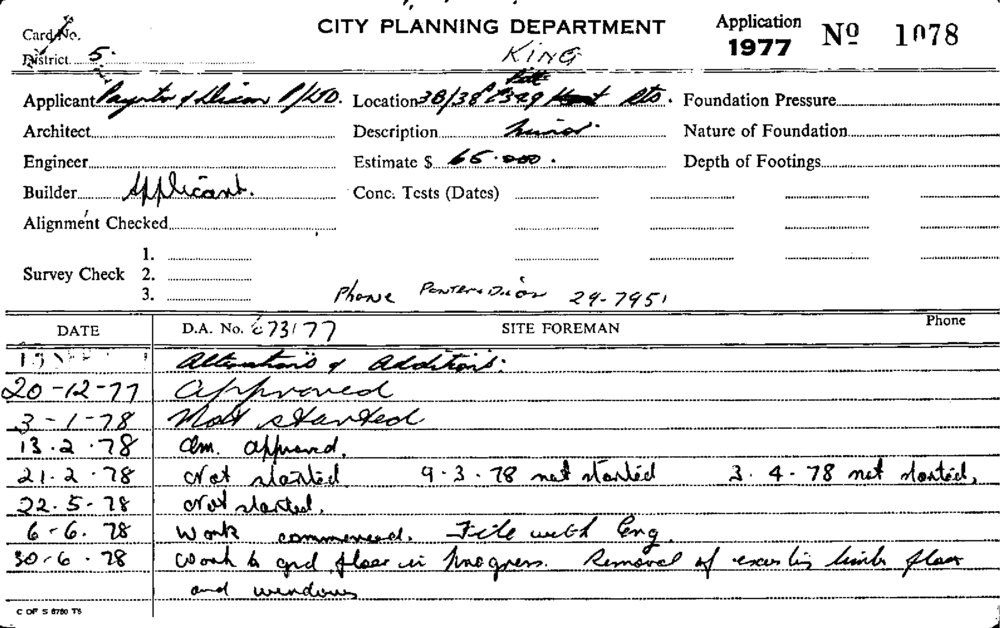 CITY PLANNING DEPARTMENT
Application 1977 Nº 1078
Card No.
District 5
KING
Pitt
Applicant Paynter & Dixon P/LTD. Location 36/38 & 329 Sts. Foundation Pressure
Architect Description Minor. Nature of Foundation
Engineer Estimate $ 65.000. Depth of Footings
Builder Applicant. Conc. Tests (Dates)
Alignment Checked
1.
Survey Check 2.
3.
Phone Paynter & Dixon 29-7951
DATE D.A. No. 73/77 SITE FOREMAN Phone
Alterations & Additions.
20-12-77 Approved
3-1-78 Not started
13.2.78 Am. approved.
21.2.78 Not started 9.3.78 not started 3.4.78 not started,
22.5.78 Not started.
6-6.78 Work commenced. File with Eng.
30.6.78 Work to gnd floor in progress. Removal of existing timber floor
and windows
C OF S 6780 T5